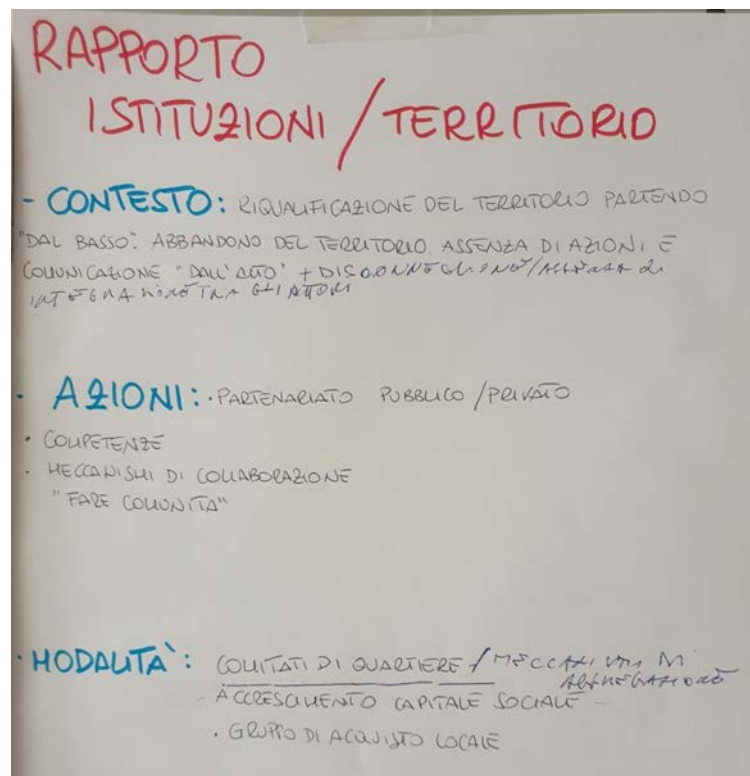 RAPPORTO
ISTITUZIONI / TERRITORIO
- CONTESTO: RIQUALIFICAZIONE DEL TERRITORIO PARTENDO
"DAL BASSO": ABBANDONO DEL TERRITORIO. ASSENZA DI AZIONI E
COMUNICAZIONE "DALL'ALTO" + DISCONNESSIONE/ASSENZA di
INTEGRAZIONE TRA GLI ATTORI
· AZIONI: · PARTENARIATO PUBBLICO / PRIVATO
· COMPETENZE
· MECCANISMI DI COLLABORAZIONE
"FARE COMUNITÀ"
· MODALITÀ: COMITATI DI QUARTIERE / MECCANISMI DI
AGGREGAZIONE
- ACCRESCIMENTO CAPITALE SOCIALE -
· GRUPPO DI ACQUISTO LOCALE